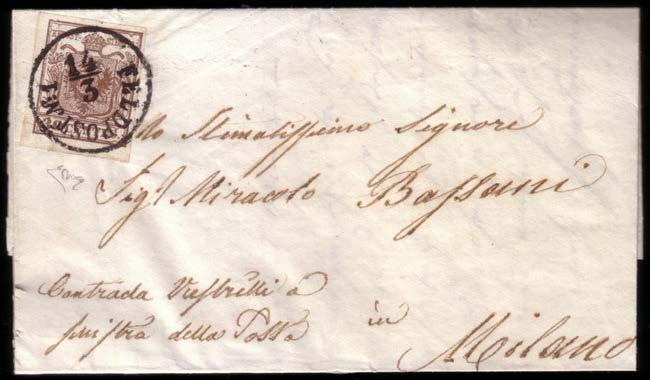 14/3
FELDPOST №1
Allo Stimatissimo Signore
Sigr Miracolo Bassani
Contrada
sinistra della Posta in Milano